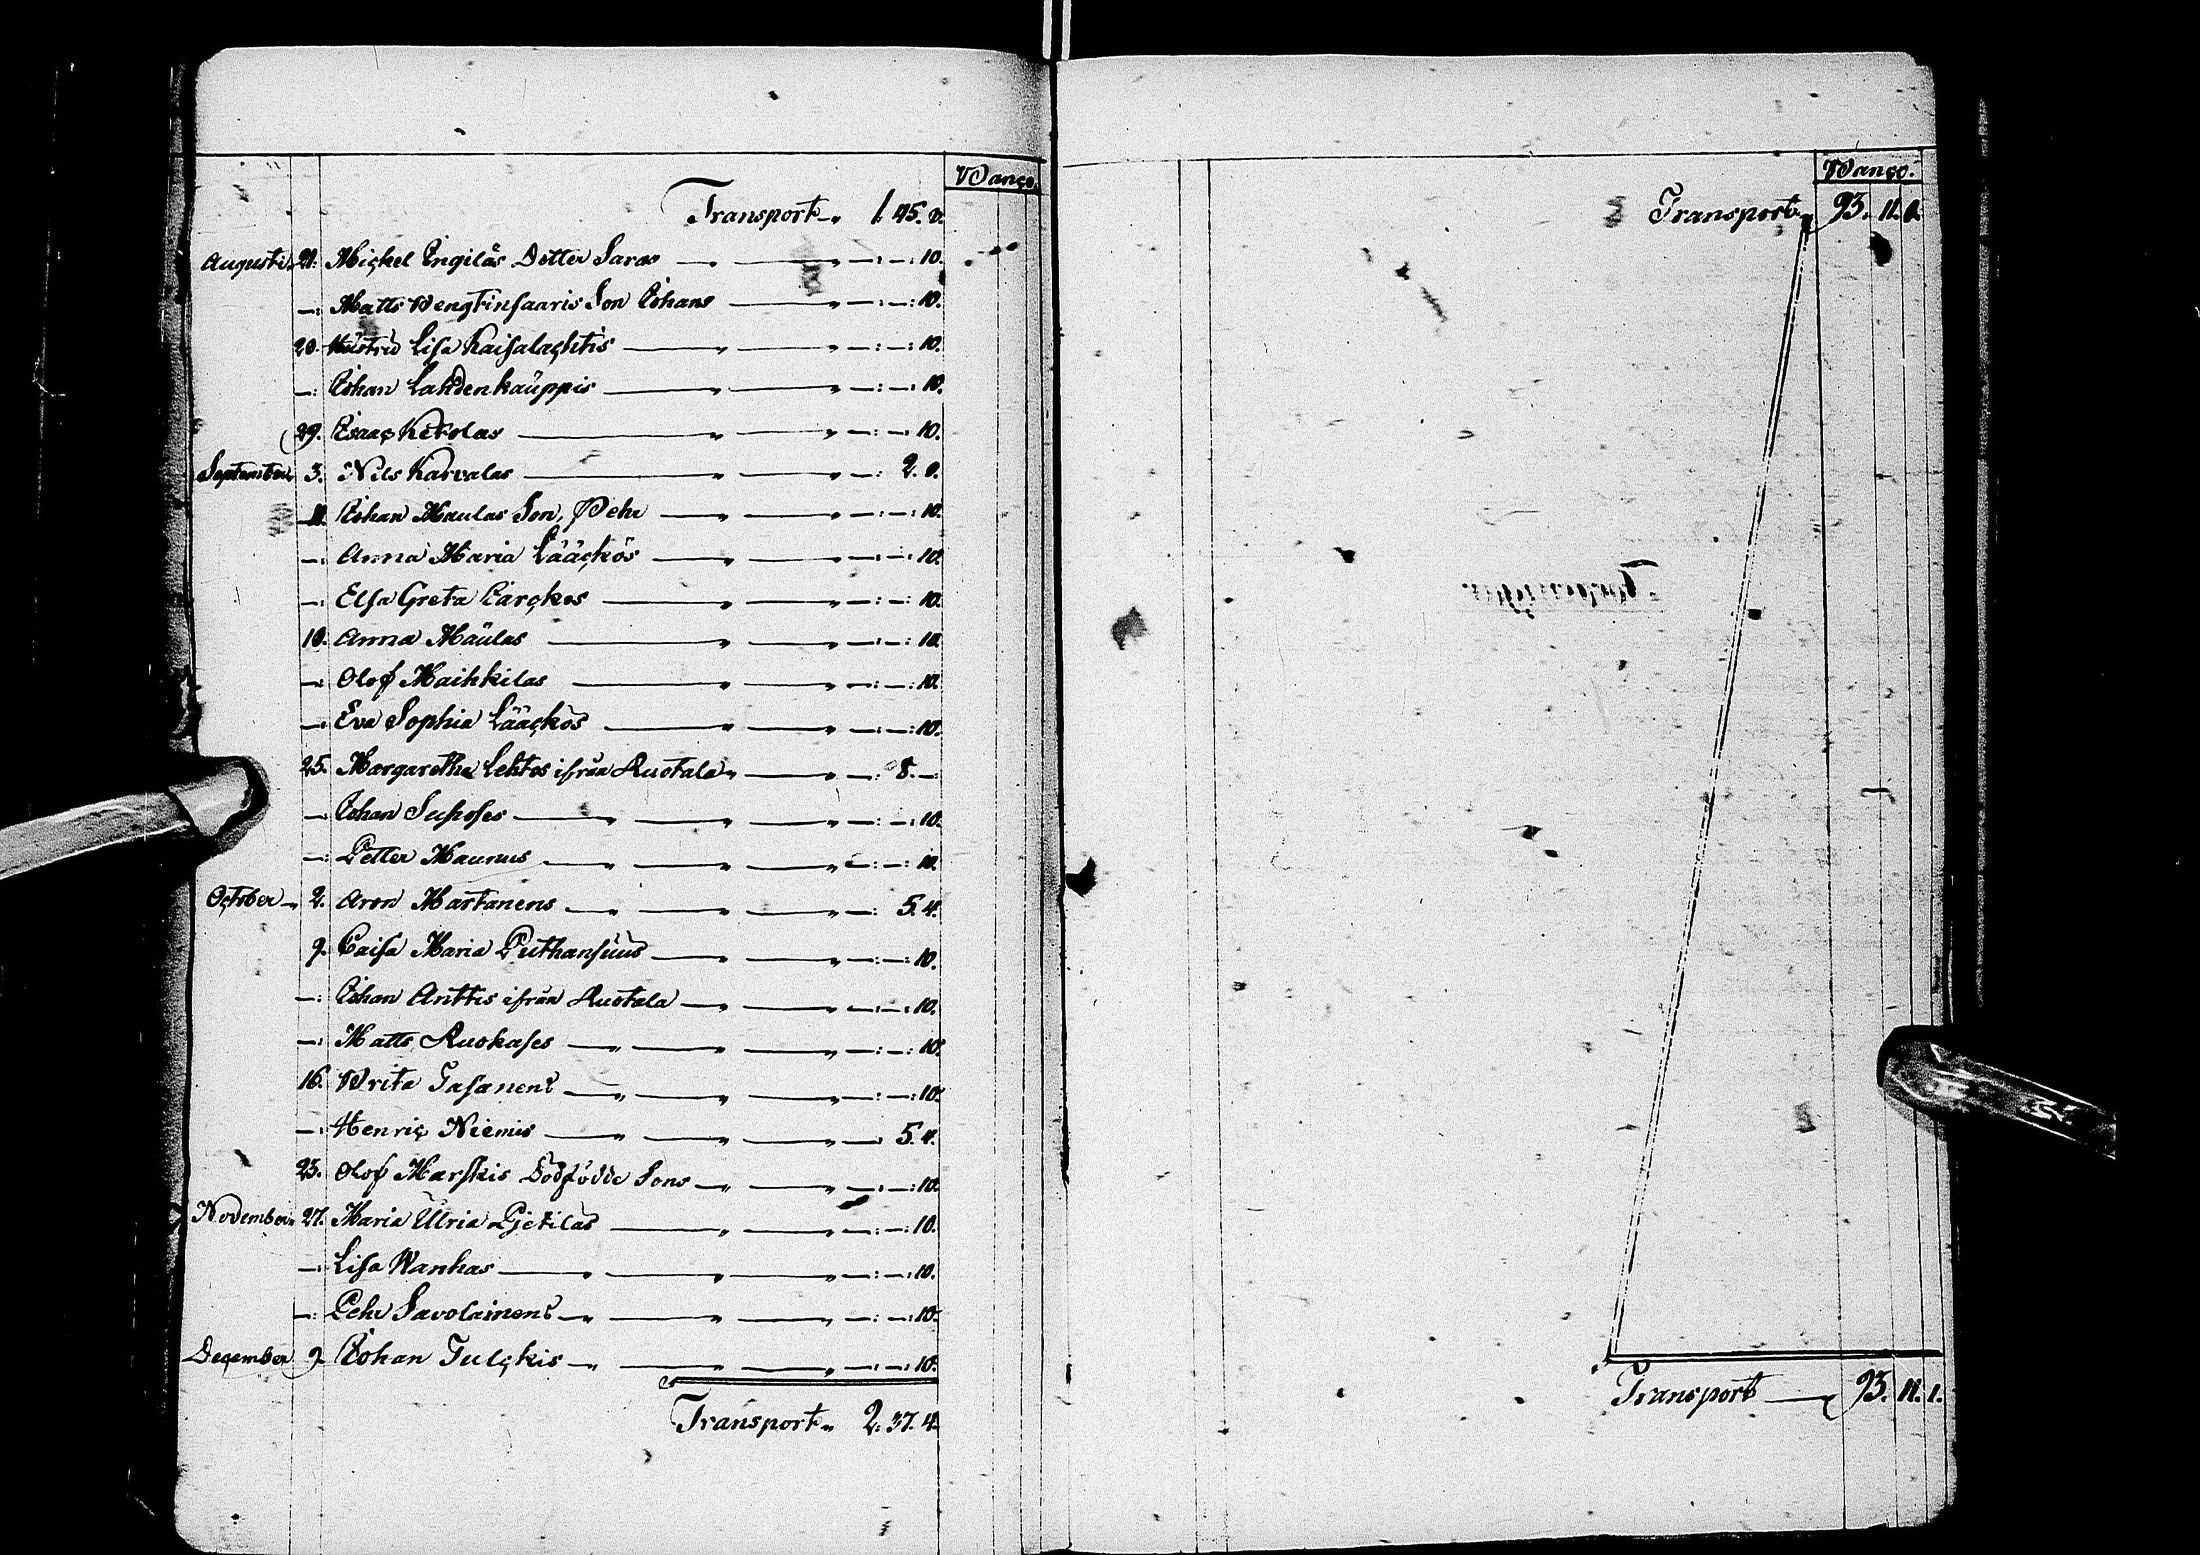 Banco.
Transport 1. 45. 0.
Augusti 21. Michel Ingiläs Dotter Saras — — : — : 10.
— : Matts Wengtinsaaris Son Johans — — : — : 10.
20. Hustru Lisa Kaisalachtis — — : — : 10.
— : Johan Lahdenkauppis — — : — : 10.
29. Isaac Ketolas — — : — : 10.
September 3. Nils Karvalas — — : 2. 0.
11. Johan Maulas Son, Pehr — — : — : 10.
— : Anna Maria Lääckös — — : — : 10.
— : Elsa Greta Jarckes — — : — : 10.
10. Anna Maulas — — : — : 10.
— : Olof Maihkilas — — : — : 10.
— : Eva Sophia Lääckös — — : — : 10.
25. Margaretha Lehtos ifrån Ruotala — — : 8. — :
— : Johan — — : — : 10.
— : Petter Maunus — — : — : 10.
October 2. Aron Martanens — — : 5. 4.
9. Caisa Maria — — : — : 10.
— : Johan Anttis ifrån Ruotala — — : — : 10.
— : Matts Ruokases — — : — : 10.
16. Brita Tasanens — — : — : 10.
— : Henric Niemis — — : 5. 4.
23. Olof Marskis Dödfödde Sons — — : — : 10.
November 27. Maria Ulrica Pietilas — — : — : 10.
— : Lisa Wanhas — — : — : 10.
— : Pehr Savolainens — — : — : 10.
December 9. Johan Tulckis — — : — : 10.
Transport 2. 37. 4.
Banco.
Transport 93. 11. 1.
Transport 93. 11. 1.